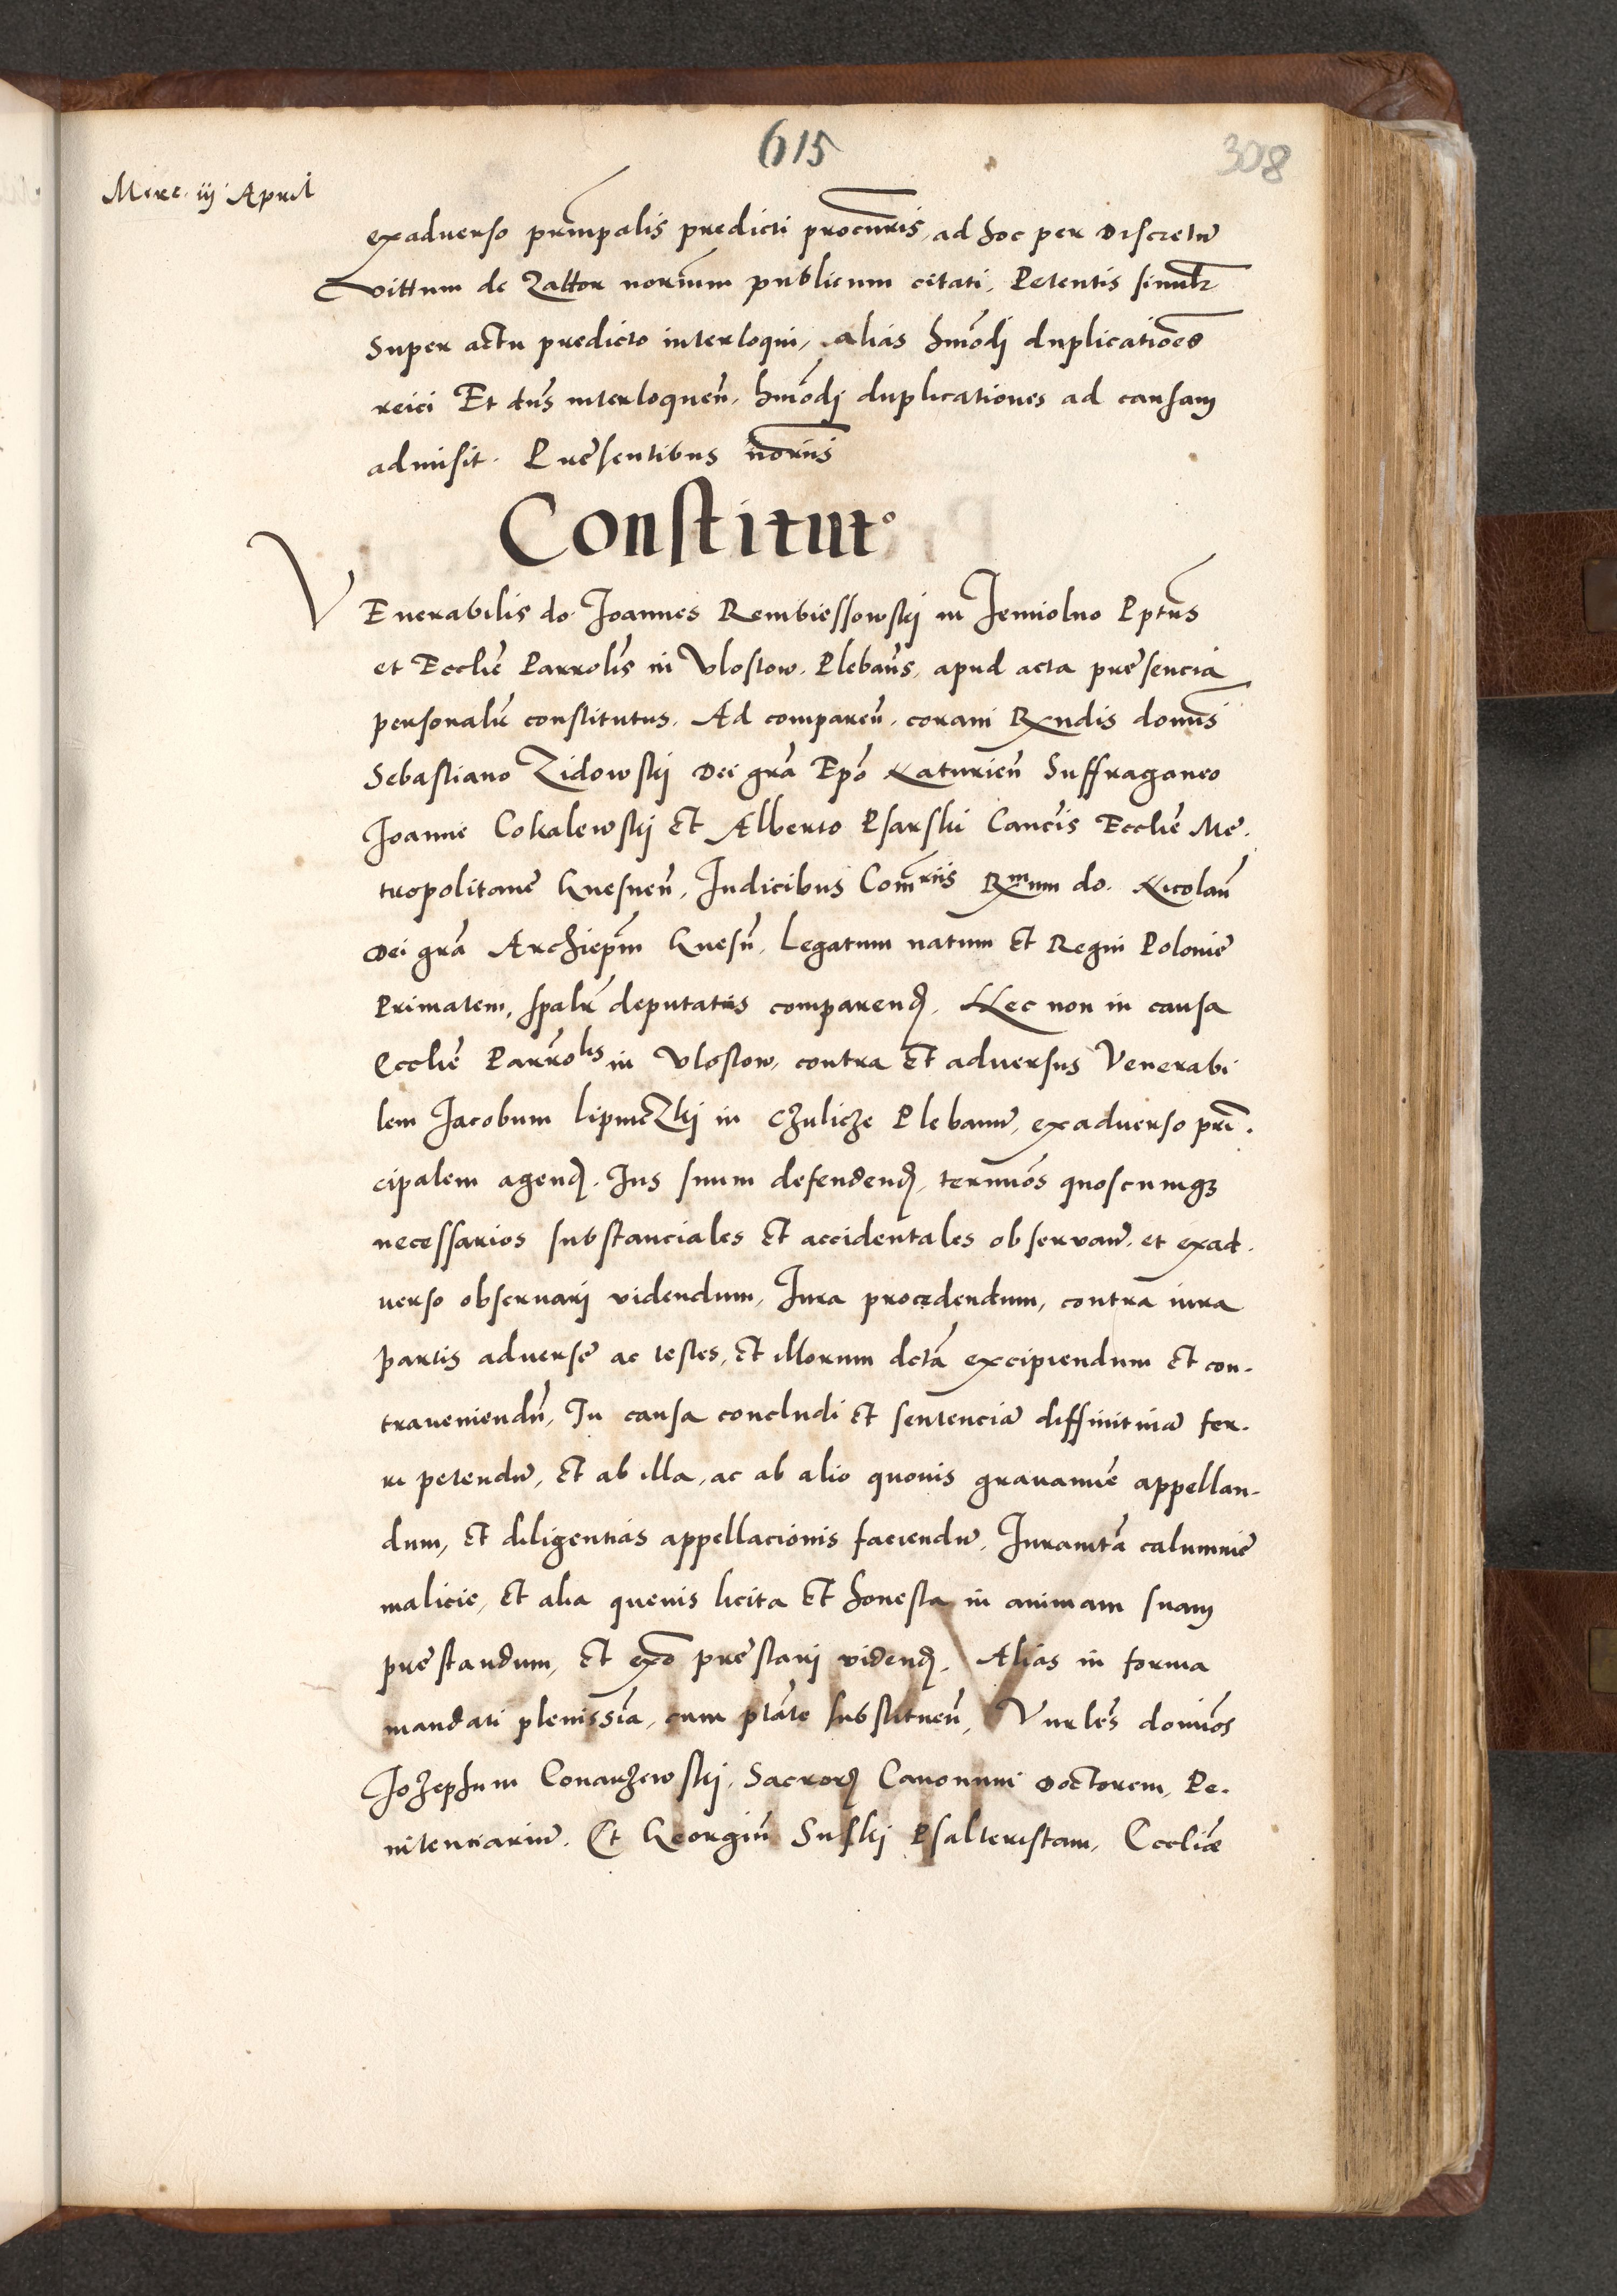 615
308
Merc. iij April
exaduerso prīncipalis predicti procuris, ad hoc per discretū
Vittum de Zattor norium publicum citati, Petentis simulr̄
super actu predicto interloqui, alias hm̄odj duplicatiōes
reici Et dn̄s interloquen̄, hm̄odj duplicationes ad causam
admisit. Presentibus noriis
Constitut°
VEnerabilis do. Joannes Rembiessowskj in Jemiolno Pptus
et Ecclie Parrolis in Vlostow, Plebanus, apud acta presencia
personalr̄ constitutus. Ad comparen̄, coram Rxndis domis
Sebastiano Zidowskj Dei gr̄a Epō Naturien̄ Suffraganeo
Joanne Cokalewskj et Alberto Psarski Cancis Ecclie Me-
tropolitane Gnesnen̄, Judicibus Comriis Rmum do. Nicolaū
Dei gr̄a Archiepm̄ Gnesn̄, Legatum natum et Regni Polonie
Primatem, spalr̄ deputatis comparend. Nec non in causa
Ecclie Parrolis in Vlostow, contra et aduersus Venerabi
lem Jacobum LipniczKj in Czulicze Plebanū, exaduerso prī-
cipalem agend. Jus suum defendend, terminos quoscumqz
necessarios substanciales et accidentales obseruanū, et exad-
uerso obseruarj videndum, Jura procedendum, contra iura
partis aduerse ac testes, et illorum dctā excipiendum et con-
traueniendū, In causa concludi et sentenciā diffinitiuā fer-
ri petendū, et ab illa, ac ab alio quouis grauamie appellan-
dum, et diligentias appellacionis faciendū. Juramtā calumnie
malicie, et alia queuis licita et honesta in animam suam
prestandum, et exō prestarj vidend. Alias in forma
mandati plenissīa, cum ptāte substituen̄, Vnrles domīos
Jozephum Conarzewskj, Sacrorꝝ Canonum doctorem, Pe-
nitenciariū. Et Georgiū Suskj Psalteristam, Eccliæ